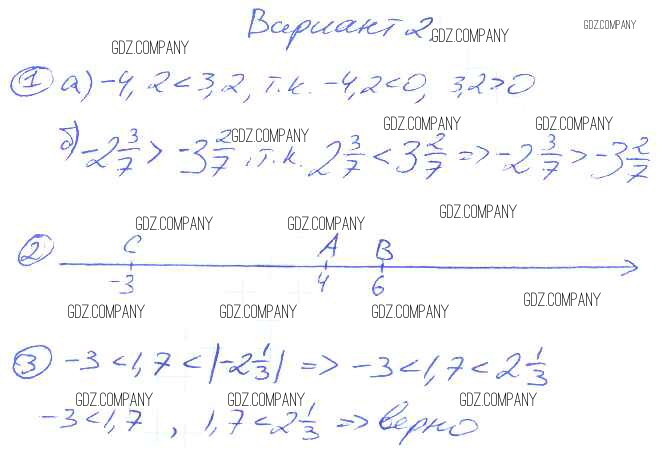 Вариант 2.
GDZ.COMPANY GDZ.COMPANY GDZ.COMPANY
① а) -4,2 < 3,2, т.к. -4,2 < 0, 3,2 > 0
GDZ.COMPANY GDZ.COMPANY GDZ.COMPANY
б) -2 3/7 > -3 2/7, т.к. 2 3/7 < 3 2/7 => -2 3/7 > -3 2/7
GDZ.COMPANY GDZ.COMPANY GDZ.COMPANY
② C A B
-3 4 6
GDZ.COMPANY GDZ.COMPANY GDZ.COMPANY GDZ.COMPANY
③ -3 < 1,7 < |-2 1/3| => -3 < 1,7 < 2 1/3
GDZ.COMPANY GDZ.COMPANY GDZ.COMPANY
-3 < 1,7 , 1,7 < 2 1/3 => верно